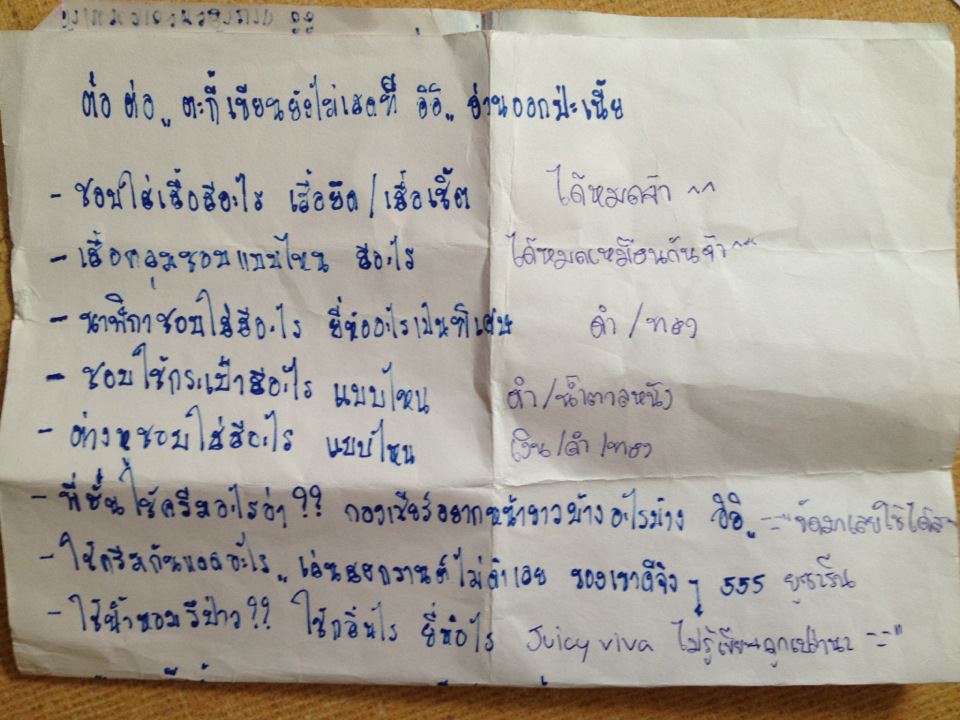 ต่อ ต่อ ตะกี้เขียนยังไม่เสดที อิอิ อ่านออกป่ะเนี่ย
- ชอบใส่เสื้อสีอะไร เสื้อยืด / เสื้อเชิ้ต ได้หมดจ้า ^^
- เสื้อคลุมชอบแบบไหน สีอะไร ได้หมดเหมือนกันจ้า ^^
- นาฬิกาชอบใส่สีอะไร ยี่ห้ออะไรเป็นพิเศษ ดำ / ทอง
- ชอบใช้กระเป๋าสีอะไร แบบไหน ดำ / น้ำตาลหนัง
- ต่างหูชอบใส่สีอะไร แบบไหน เงิน / ดำ / ทอง
- พี่ชั้นใช้ครีมอะไรอ่ะ?? กองเชียร์อยากหน้าขาวบ้างอะไรบ้าง อิอิ =="
- ใช้ครีมกันแดดอะไร เล่นสงกรานต์ไม่ดำเลย ของเขาดีจิง ๆ 555 ยูเซริน
- ใช้น้ำหอมรึป่าว?? ใช้กลิ่นไร ยี่ห้อไร Juicy viva ไม่รู้เขียนถูกเปล่านะ =="